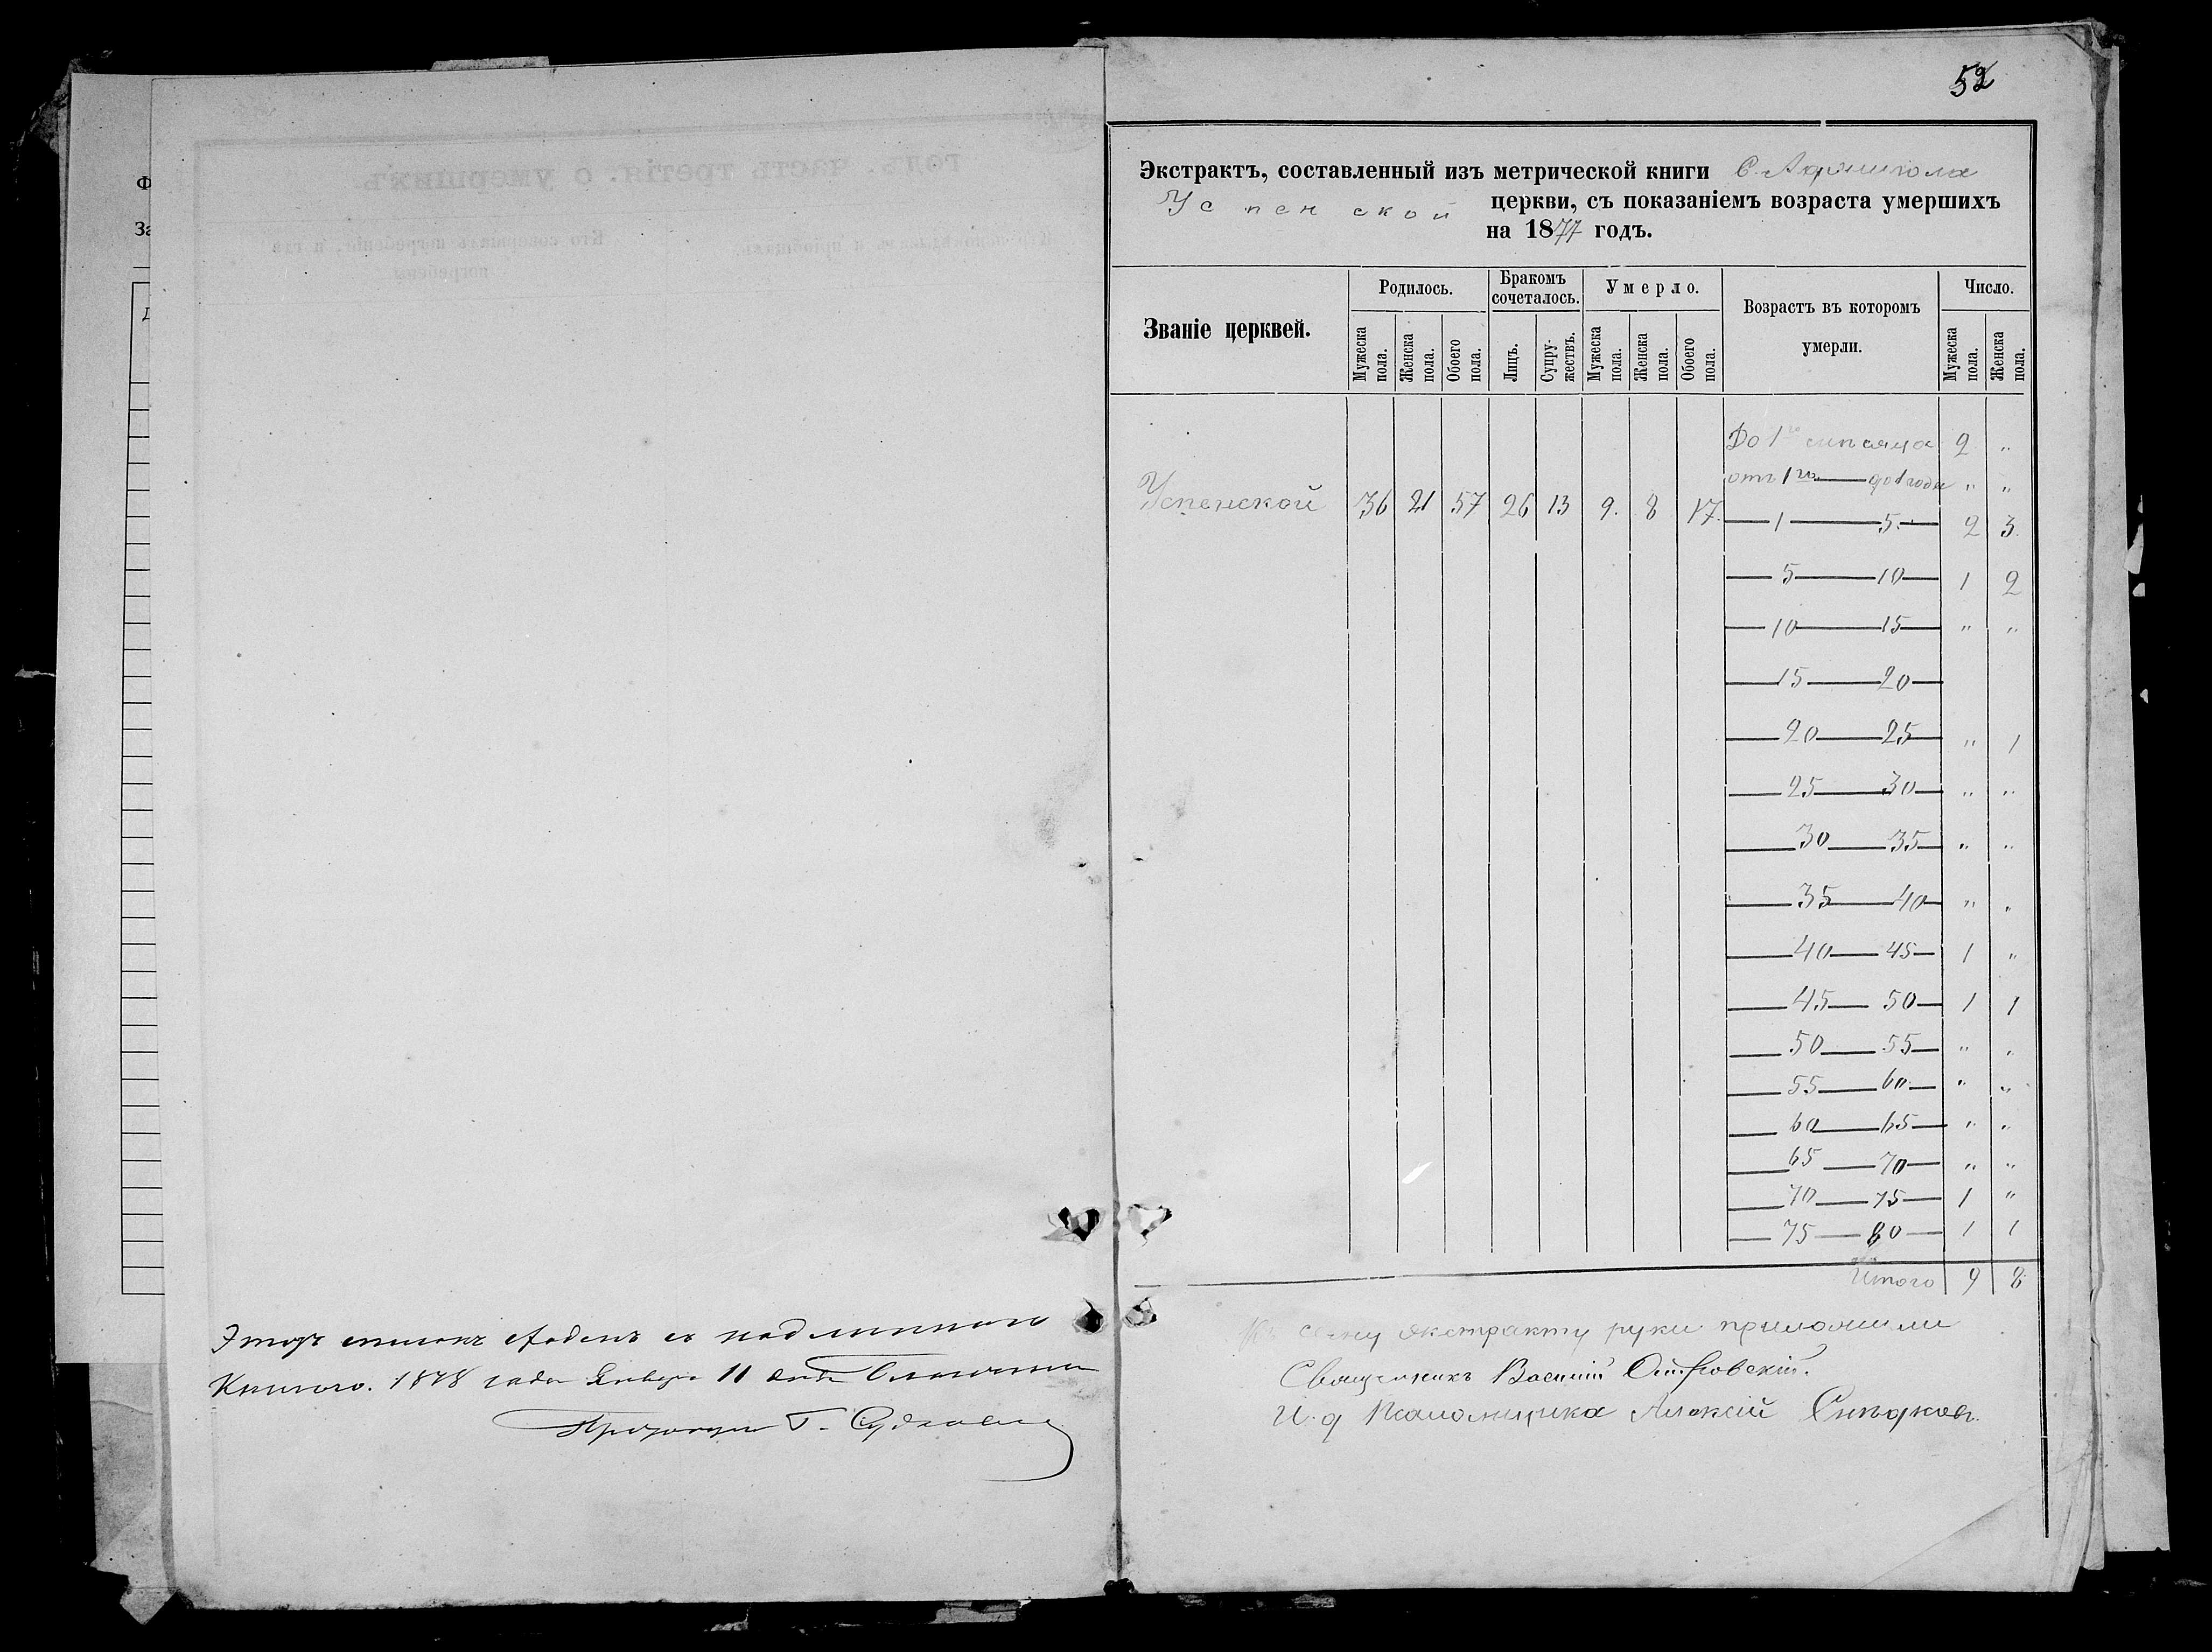 Этотъ списокъ сходенъ съ подлинною
Книгою. 1878 года Января 11 дня
52
Экстрактъ, составленный изъ метрической книги С.
Успенской церкви, съ показаніемъ возраста умершихъ
на 1877 годъ.
Званіе церквей.
Родилось.
Бракомъ сочеталось.
Умерло.
Возрастъ въ которомъ умерли.
Число.
Мужеска пола.
Женска пола.
Обоего пола.
Лицъ.
Супружествъ.
Мужеска пола.
Женска пола.
Обоего пола.
Мужеска пола.
Женска пола.
До 1го мѣсяца 2 "
отъ 1го — до 1 года " "
Успенской 36 21 57 26 13 9. 8 17.
— 1 — 5 — 2 3.
— 5 — 10 — 1 2
— 10 — 15 — " "
— 15 — 20 —
— 20 — 25 — " 1
— 25 — 30 — " "
— 30 — 35 — " "
— 35 — 40 — " "
— 40 — 45 — 1 "
— 45 — 50 — 1 1
— 50 — 55 — " "
— 55 — 60 — " "
— 60 — 65 — " "
— 65 — 70 — " "
— 70 — 75 — 1 "
— 75 — 80 — 1 1
Итого 9 8
Къ сему экстракту руки приложили
Священникъ Василій Островскій.
И. д Псаломщика Алексѣй